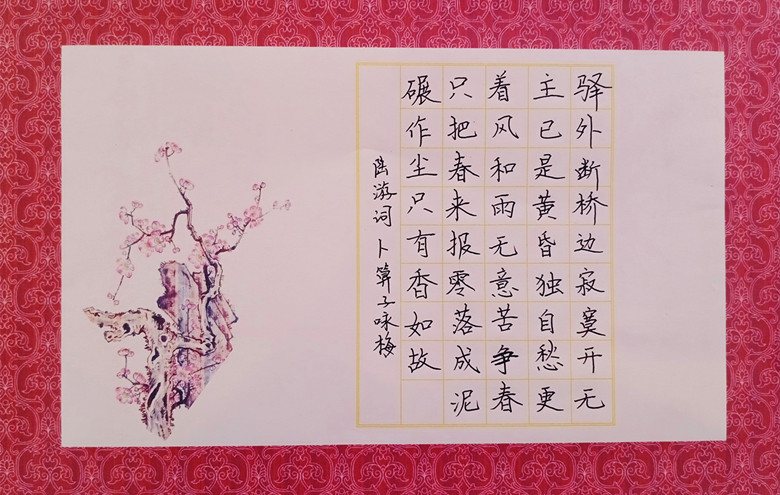 驿外断桥边寂寞开无
主已是黄昏独自愁更
着风和雨无意苦争春
只把春来报零落成泥
碾作尘只有香如故
陆游词卜算子咏梅